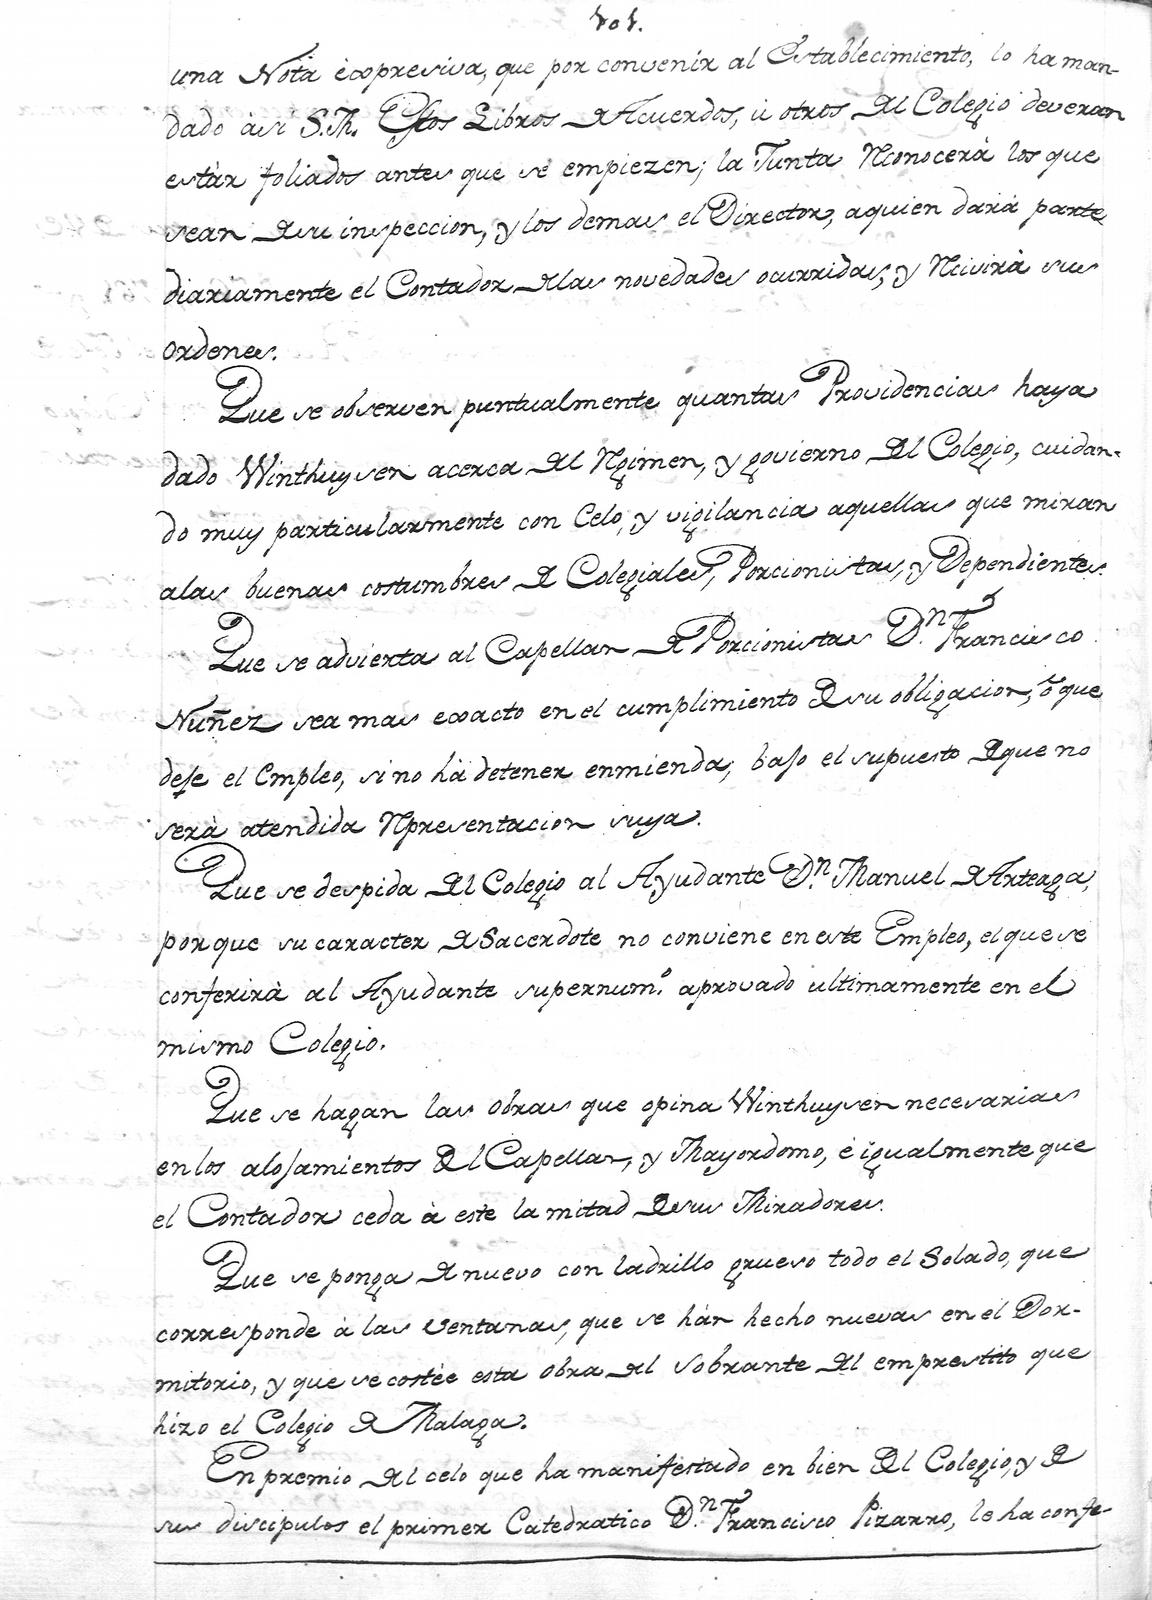 una Nota expresiva, que por convenir al Establecimiento, lo ha man-
dado àsi S.M. Estos Libros de Acuerdos, ù otros del Colegio deveran
estàr foliados antes que se empiezen; la Junta reconocerà los que
sean de su inspeccion, y los demas el Director, aquien darà parte
diariamente el Contador de las novedades ocurridas, y recivirà sus
ordenes.
Que se observen puntualmente quantas Providencias haya
dado Winthuysen acerca del regimen, y govierno del Colegio, cuidan-
do muy particularmente con Celo, y vigilancia aquellas que miran
alas buenas costumbres de Colegiales, Porcionistas, y Dependientes.
Que se advierta al Capellan de Porcionistas D.n Francisco
Nuñez sea mas exacto en el cumplimiento de su obligacion, ò que
deje el Empleo, si no hà detener enmienda, bajo el supuesto de que no
serà atendida representacion suya.
Que se despida del Colegio al Ayudante D.n Manuel de Arteaga,
porque su caracter de Sacerdote no conviene en este Empleo, el que se
conferirà al Ayudante supernum.o aprovado ultimamente en el
mismo Colegio.
Que se hagan las obras que opina Winthuysen necesarias
en los alojamientos del Capellan, y Mayordomo, è igualmente que
el Contador ceda à este la mitad de sus Miradores.
Que se ponga de nuevo con ladrillo grueso todo el Solado, que
corresponde à las Ventanas, que se hàn hecho nuevas en el Dor-
mitorio, y que se costèe esta obra del sobrante del emprestito que
hizo el Colegio de Malaga.
En premio del celo que ha manifestado en bien del Colegio, y de
sus discipulos el primer Catedratico D.n Francisco Pizarro, le ha confe-